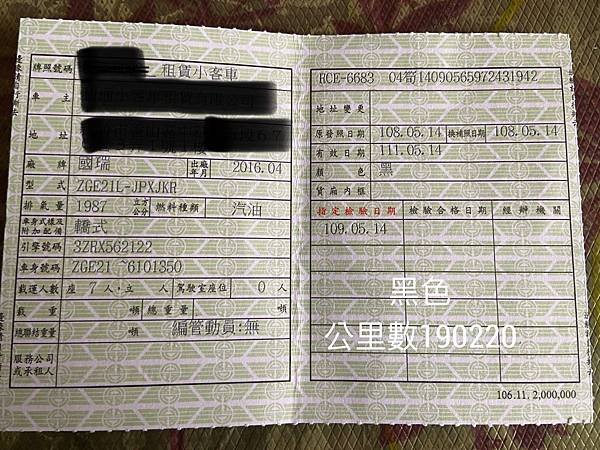 牌照號碼 租賃小客車
車主
地址
廠牌 國瑞 出廠年月 2016.04
型式 ZGE21L-JPXJKR
排氣量 1987 立方公分 燃料種類 汽油
車身式樣及附加配備 轎式
引擎號碼 3ZRX562122
車身號碼 ZGE21 ~6101350
載運人數 座 7 人,立 人 駕駛室座位 0 人
載重 噸 總重量 噸
總聯結重量 噸 編管動員:無
服務公司或承租人
RCE-6683 04筍14090565972431942
地址變更
原發照日期 108.05.14 換補照日期 108.05.14
有效日期 111.05.14
顏色 黑
貨廂內框
指定檢驗日期 檢驗合格日期 經辦機關
109.05.14
黑色
公里數190220
106.11. 2,000,000